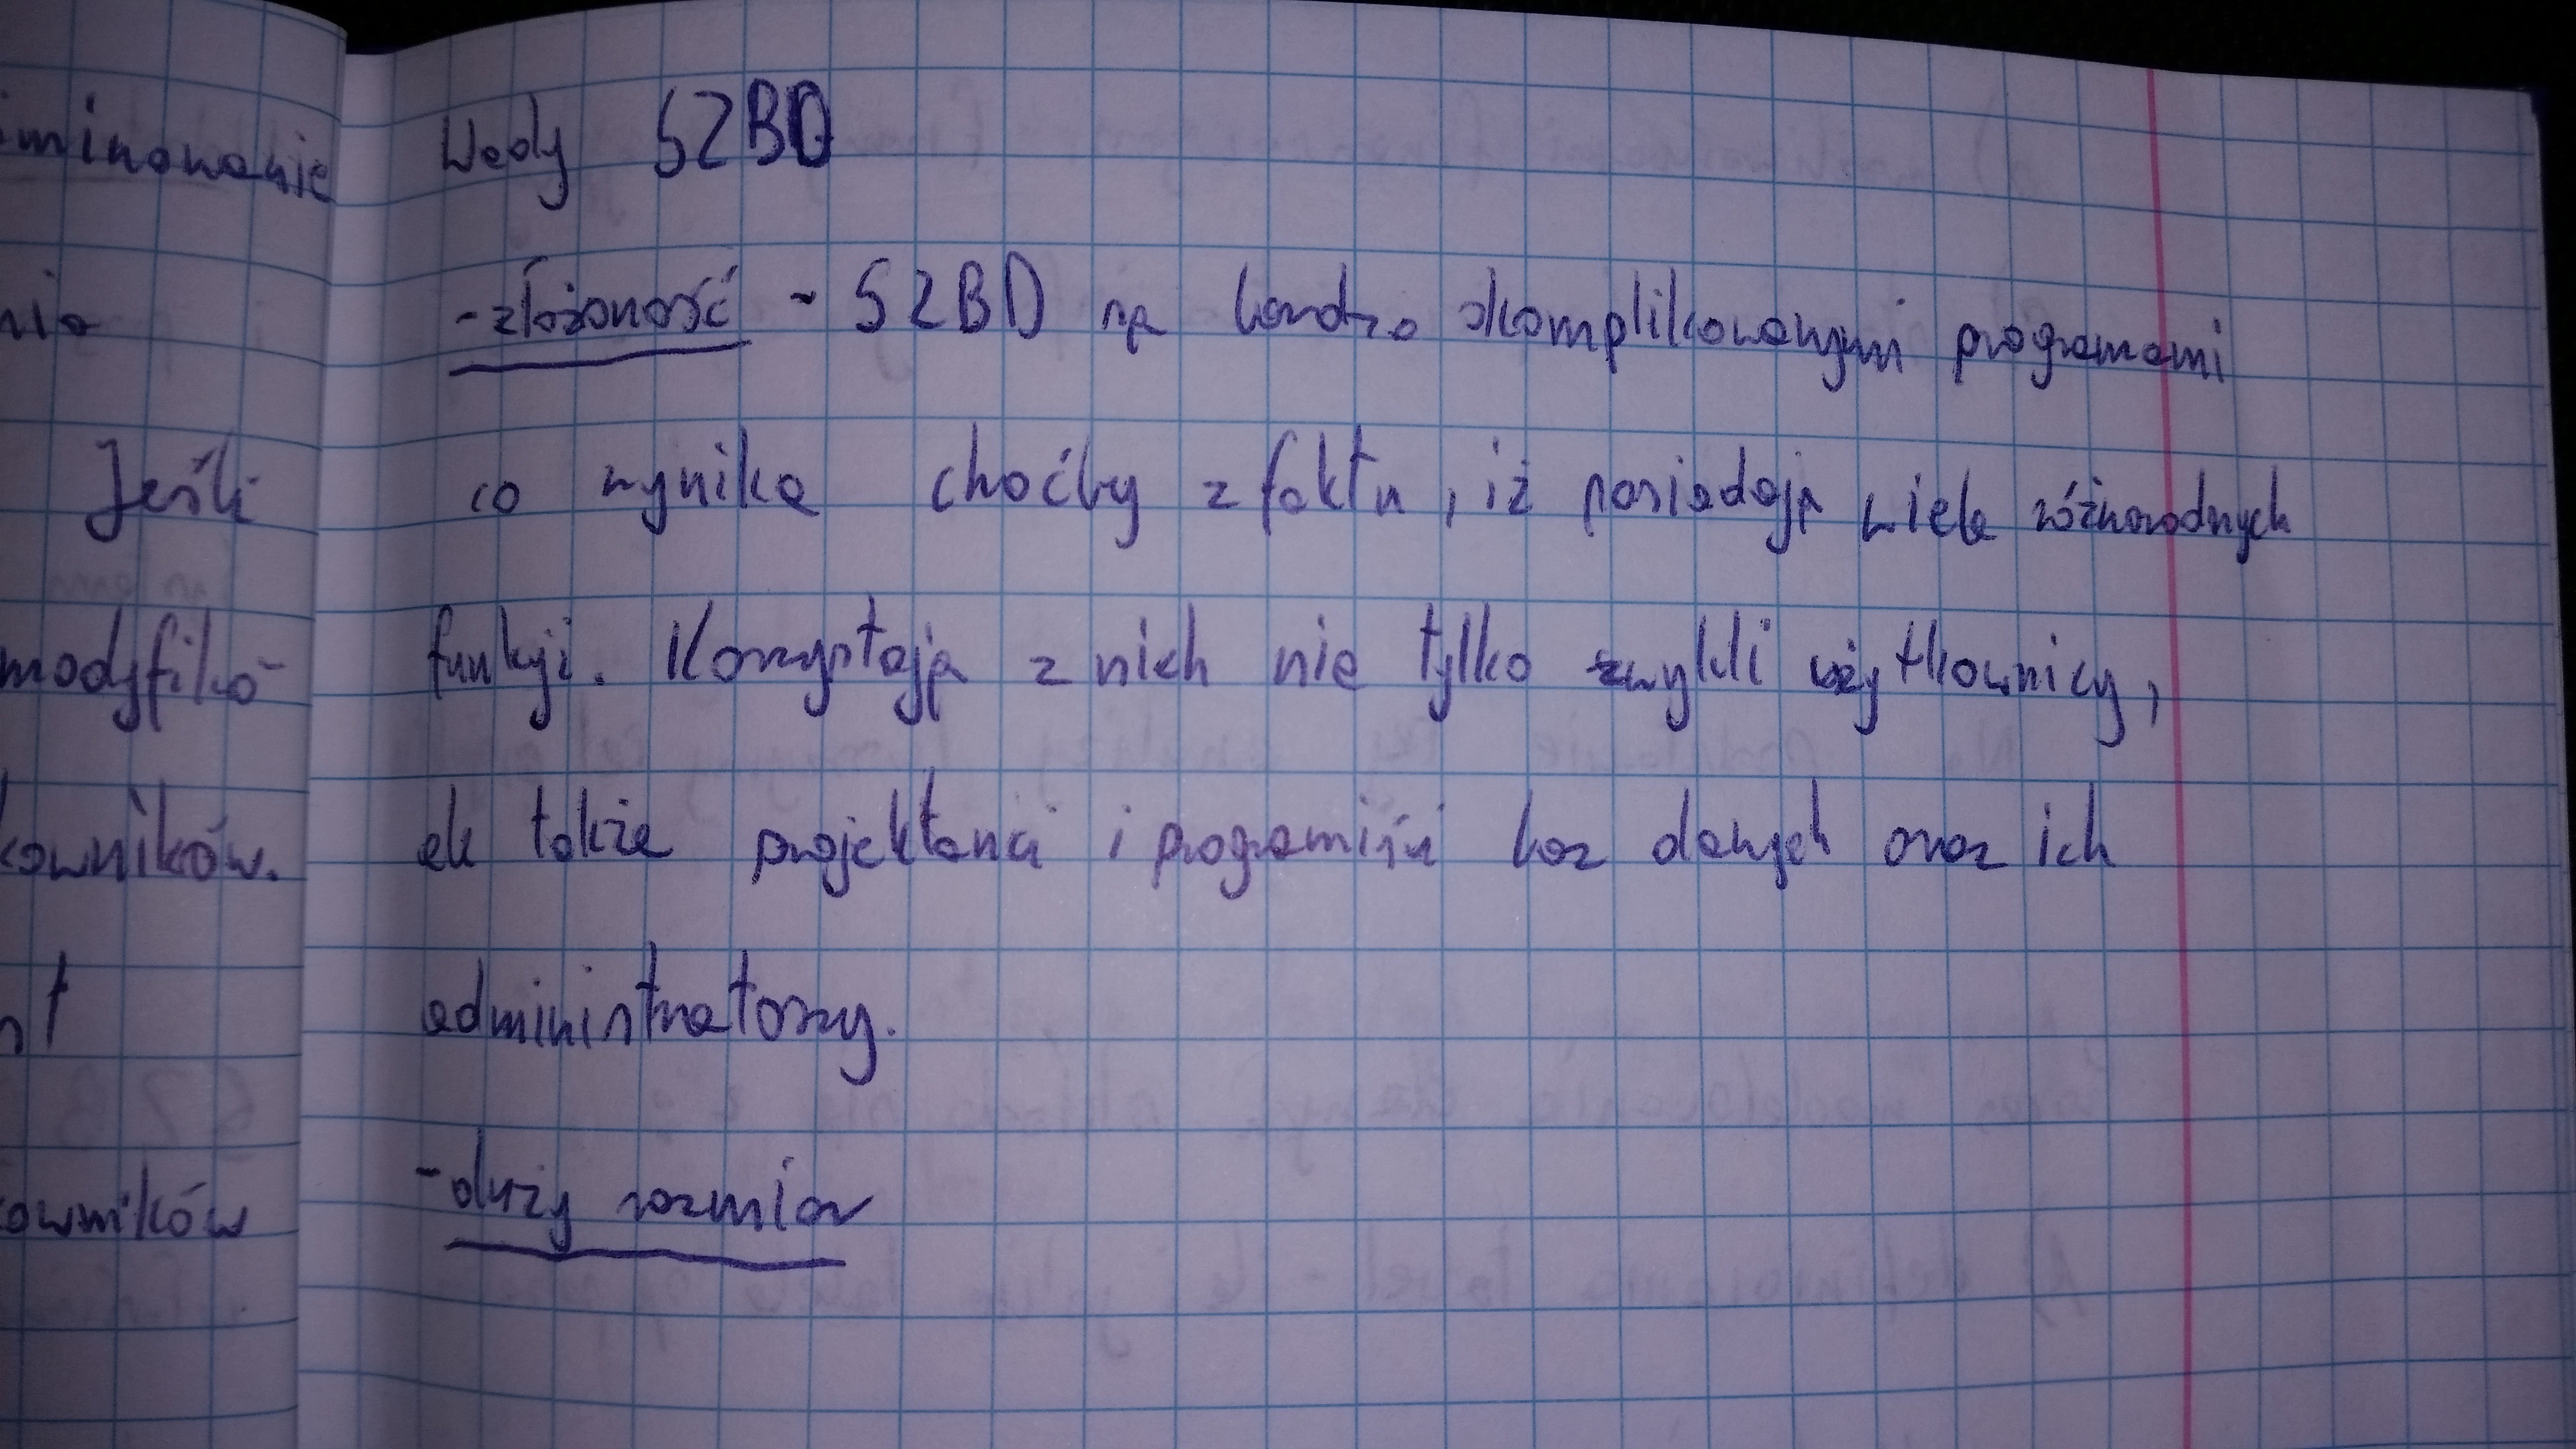 Wady SZBD
- złożoność - SZBD są bardzo skomplikowanymi programami
co wynika choćby z faktu, iż posiadają wiele różnorodnych
funkcji. Korzystają z nich nie tylko zwykli użytkownicy,
ale także projektanci i programiści baz danych oraz ich
administratorzy.
- duży rozmiar
iminowanie
nia
Jeśli
modyfiko
kowników.
t
owników